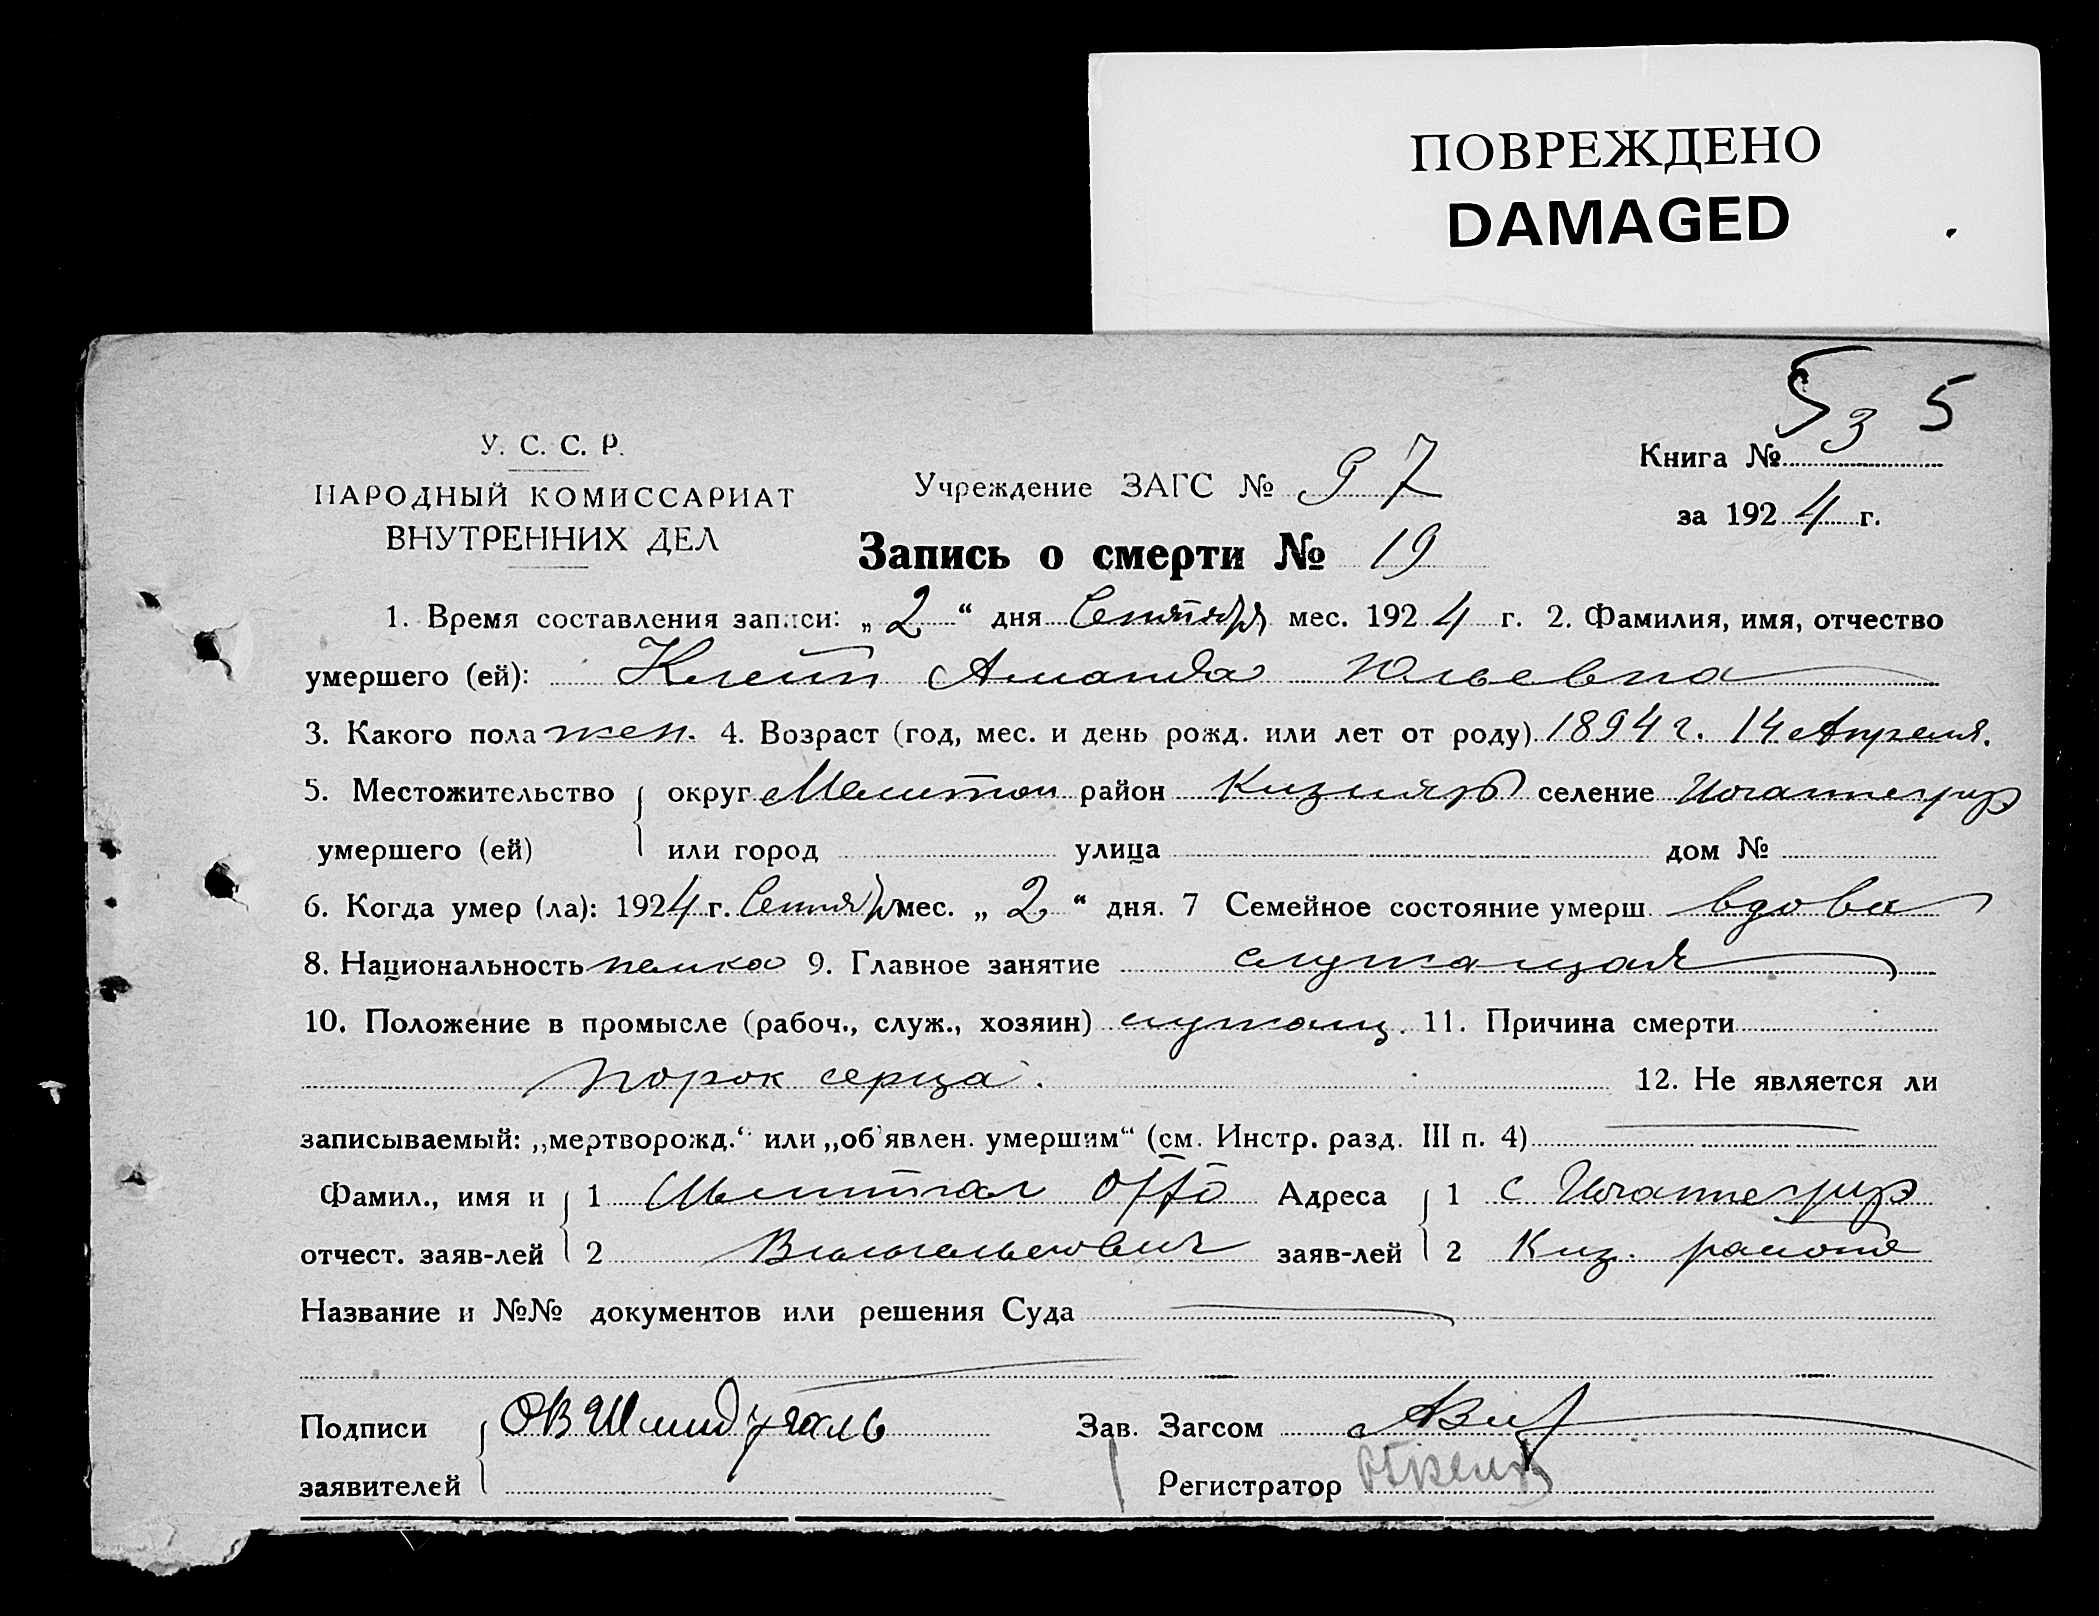 ПОВРЕЖДЕНО
DAMAGED
5 3 5
У. С. С. Р.
НАРОДНЫЙ КОМИССАРИАТ
ВНУТРЕННИХ ДЕЛ
Учреждение ЗАГС № 97
Книга №
за 1924 г.
Запись о смерти № 19
1. Время составления записи: „2“ дня Сентября мес. 1924 г. 2. Фамилия, имя, отчество
умершего (ей): Клейн Аманда Юльевна
3. Какого пола жен. 4. Возраст (год, мес. и день рожд. или лет от роду) 1894 г. 14 Апреля.
5. Местожительство округ Мелитоп район Кизияр селение Иоганнесрур
умершего (ей) или город улица дом №
6. Когда умер (ла): 1924 г. Сентяб мес. „2“ дня. 7 Семейное состояние умерш. вдова
8. Национальность немка 9. Главное занятие служащая
10. Положение в промысле (рабоч., служ., хозяин) служащ. 11. Причина смерти
порок серца.
12. Не является ли
записываемый: „мертворожд.“ или „об'явлен. умершим“ (см. Инстр. разд. III п. 4)
Фамил., имя и 1 Отто Адреса 1 с Иоганнесрур
отчест. заяв-лей 2 Вильгельмович заяв-лей 2 Киз. района
Название и №№ документов или решения Суда
Подписи ОВ Зав. Загсом
заявителей Регистратор